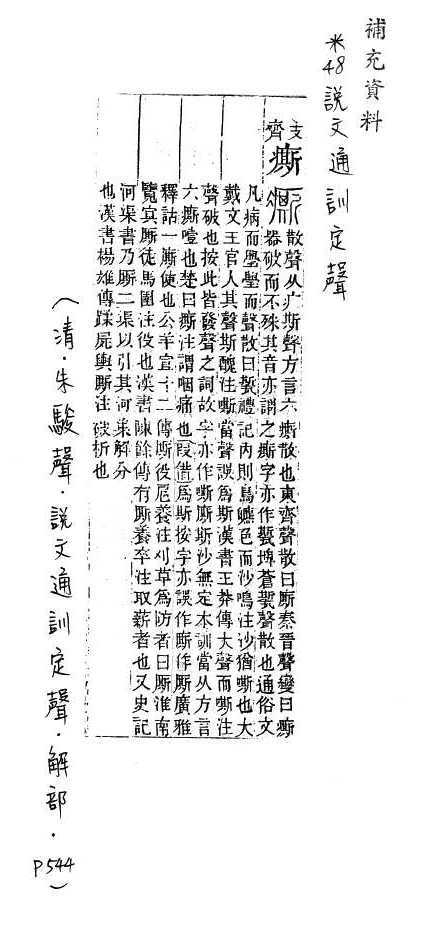 補充資料
※48 說文通訓定聲
支
齊
㾷
散聲从疒斯聲方言六㾷散也東齊聲散曰㾷秦晉聲變曰㾷
器破而不殊其音亦謂之㾷字亦作㽄埤蒼㽄聲散也通俗文
凡病而璺璺而聲散曰㽄禮記內則鳥皫色而沙鳴注沙猶嘶也大
戴文王官人其聲斯醜注嘶當聲誤爲斯漢書王莽傳大聲而嘶注
聲破也按此皆發聲之詞故字亦作嘶廝斯沙無定本訓當从方言
六㾷噎也楚曰㾷注謂咽痛也叚借爲斯按字亦誤作㾷作廝廣雅
釋詁一廝使也公羊宣十二傳廝役扈養注刈草爲防者曰廝淮南
覽冥廝徒馬圉注役也漢書陳餘傳有廝養卒注取薪者也又史記
河渠書乃廝二渠以引其河集解分
也漢書楊雄傳蹂屍輿廝注破折也
(清．朱駿聲．說文通訓定聲．解部．P544)